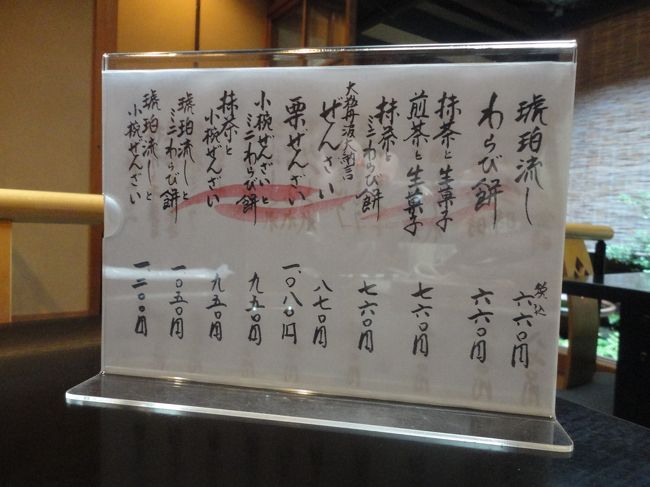 琥珀流し 税込 六六〇円
わらび餅 六六〇円
抹茶と生菓子
煎茶と生菓子 七六〇円
抹茶と
ミニわらび餅 七六〇円
大粒丹波大納言
ぜんざい 八七〇円
栗ぜんざい 一、〇八〇円
小椀ぜんざいと
ミニわらび餅 九五〇円
抹茶と
小椀ぜんざい 九五〇円
琥珀流しと
ミニわらび餅 一、〇五〇円
琥珀流しと
小椀ぜんざい 一、二〇〇円